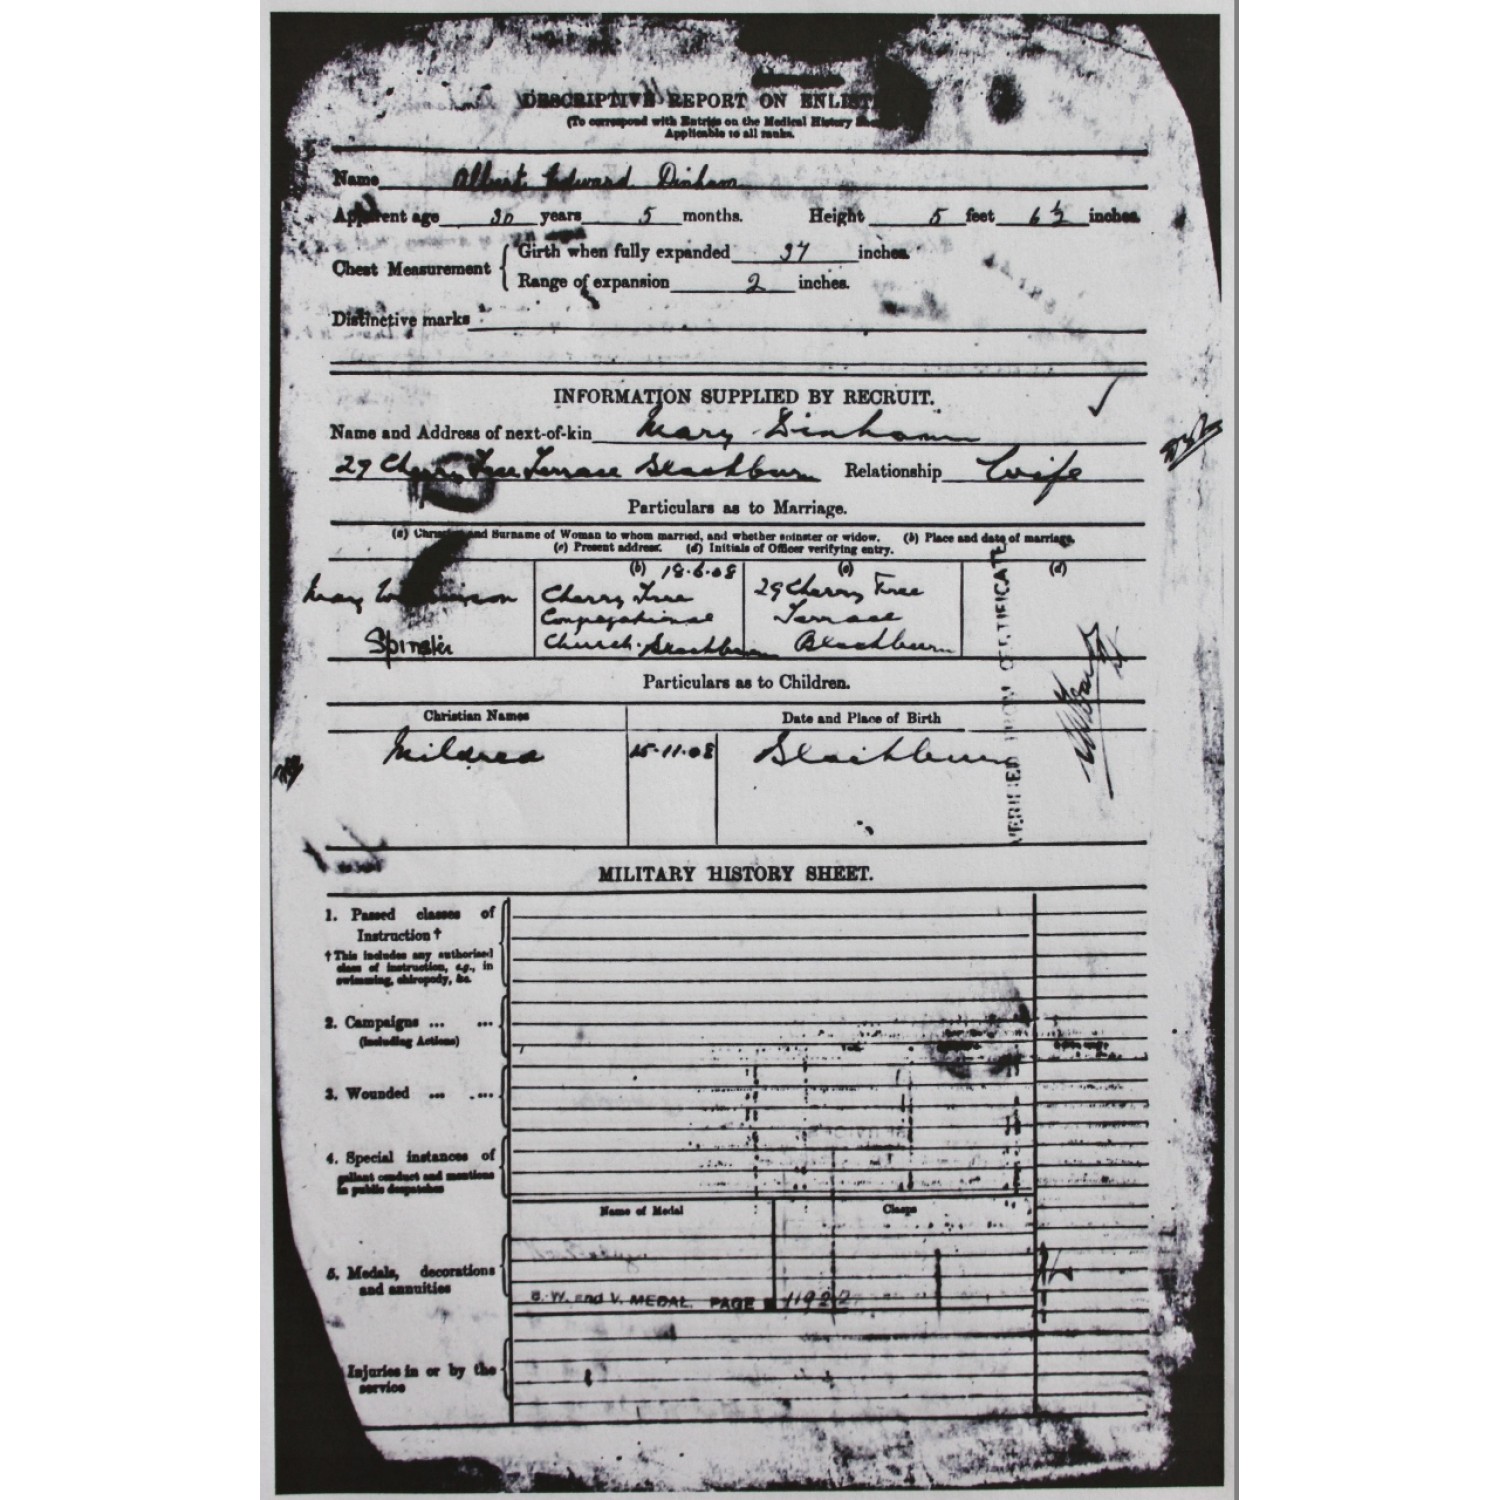 DESCRIPTIVE REPORT ON ENLIST
(To correspond with Entries on the Medical History
Applicable to all ranks.
Name Albert Edward Dinham
Apparent age 30 years 5 months. Height 5 feet 6 ½ inches.
Chest Measurement { Girth when fully expanded 37 inches.
Range of expansion 2 inches.
Distinctive marks
INFORMATION SUPPLIED BY RECRUIT.
Name and Address of next-of-kin Mary Dinham
29 Cherry Tree Terrace Blackburn Relationship Wife
Particulars as to Marriage.
(a) Christian and Surname of Woman to whom married, and whether spinster or widow. (b) Place and date of marriage.
(c) Present address. (d) Initials of Officer verifying entry.
(b) 18.6.08 (c) (d)
Mary Cherry Tree 29 Cherry Tree
Congregational Terrace
Spinster Church. Blackburn Blackburn
VERIFIED FROM CERTIFICATE
Particulars as to Children.
Christian Names Date and Place of Birth
Mildred 15.11.08 Blackburn
MILITARY HISTORY SHEET.
1. Passed classes of
Instruction †
† This includes any authorised
class of instruction, e.g., in
swimming, chiropody, &c.
2. Campaigns ... ...
(including Actions)
3. Wounded ... ...
4. Special instances of
gallant conduct and mentions
in public despatches
Name of Medal Clasps
5. Medals, decorations
and annuities
B.W. and V. MEDAL. PAGE 11922
Injuries in or by the
service